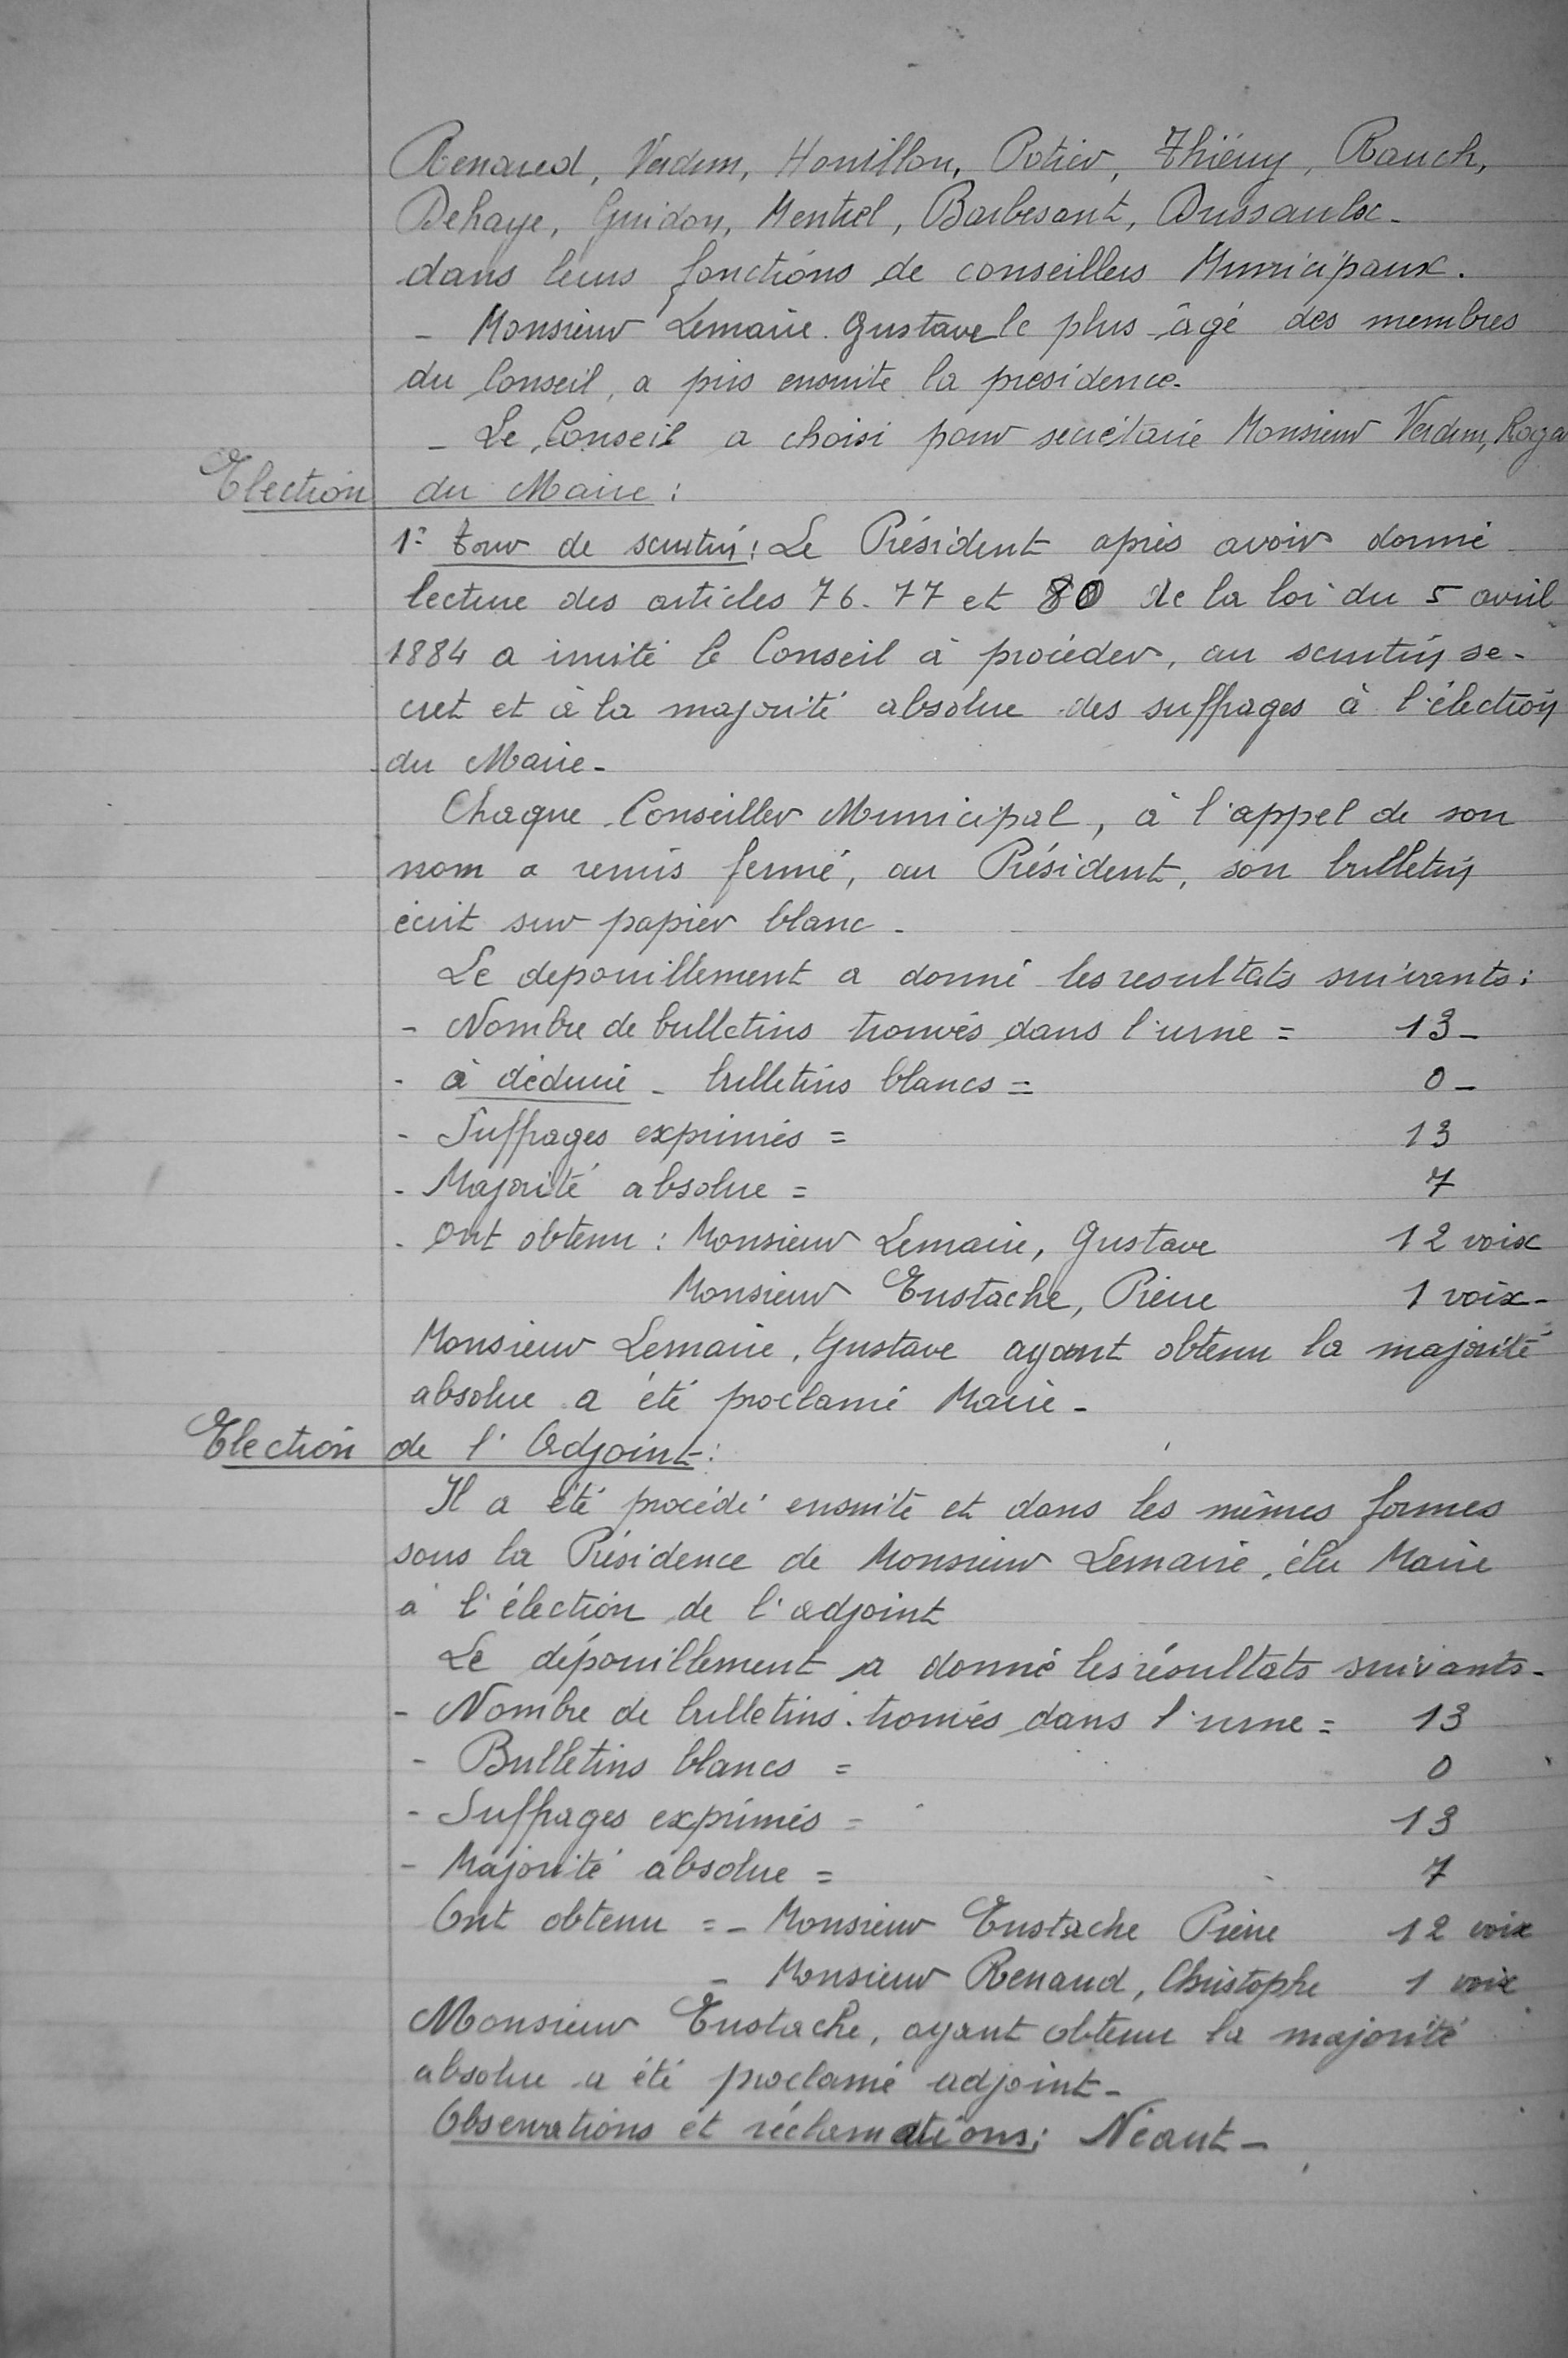 Renaud, Verdun, Houillon, Potier, Thiéry, Rauch,
Dehaye, Guidon, Mentrel, Barbesant, Dussaulx-
dans leurs fonctions de conseillers Municipaux.
- Monsieur Lemaire. Gustave le plus âgé des membres
du Conseil, a pris ensuite la presidence-
- Le Conseil a choisi pour secrétaire Monsieur Verdun, Roger
Election du Maire:
1er tour de scrutin: Le Président après avoir donné
lecture des articles 76. 77 et 80 de la loi du 5 avril
1884 a invité le Conseil à procéder, au scrutin se-
cret et à la majorité absolue des suffrages à l'élection
du Maire-
Chaque Conseiller Municipal, à l'appel de son
nom a remis fermé, au Président, son bulletin
écrit sur papier blanc-
Le depouillement a donné les resultats suivants:
- Nombre de bulletins trouvés dans l'urne = 13-
- à déduire - bulletins blancs = 0-
- Suffrages exprimés = 13
- Majorité absolue = 7
- Ont obtenu: Monsieur Lemaire, Gustave 12 voix
Monsieur Eustache, Pierre 1 voix-
Monsieur Lemaire, Gustave ayant obtenu la majorité
absolue a été proclamé Maire-
Election de l'Adjoint:
Il a été procédé ensuite et dans les mêmes formes
sous la Présidence de Monsieur Lemaire, élu Maire
à l'élection de l'adjoint
Le dépouillement a donné les résultats suivants-
- Nombre de bulletins trouvés dans l'urne = 13
- Bulletins blancs = 0
- Suffrages exprimés = 13
- Majorité absolue = 7
Ont obtenu = - Monsieur Eustache Pierre 12 voix
- Monsieur Renaud, Christophe 1 voix
Monsieur Eustache, ayant obtenu la majorité
absolue a été proclamé adjoint-
Observations et réclamations: Néant-